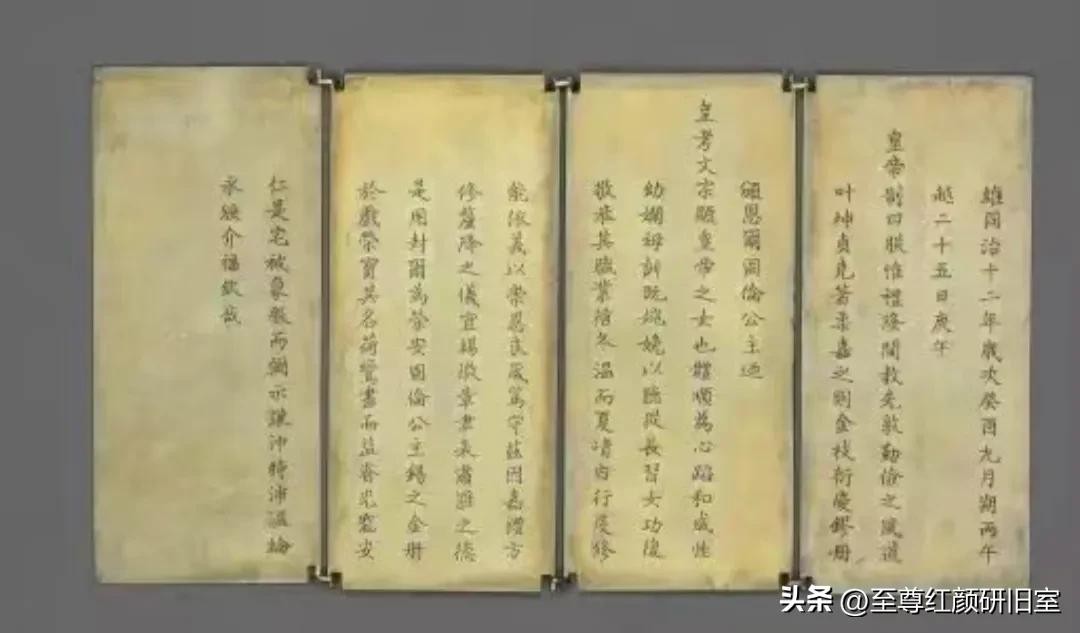 維同治十二年歲次癸酉九月朔丙午
越二十五日庚午
皇帝制曰朕惟禮隆閫教先敦勤儉之風道
叶坤貞克著柔嘉之則金枝衍慶鏐冊
頒恩爾固倫公主迺
皇考文宗顯皇帝之女也體順為心蹈和成性
幼嫻母訓既婉娩以聽從長習女功復
敬恭其職業冬溫而夏凊內行修
能依義以崇恩良箴篤守茲因嘉禮方
修釐降之儀宜錫徽章聿表肅雝之德
是用封爾為榮安固倫公主錫之金冊
於戲榮寶其名荷鸞書而益光安
仁是宅被象服而彌示謙沖特沛溫綸
永綏介福欽哉
头条 @至尊红颜研旧室